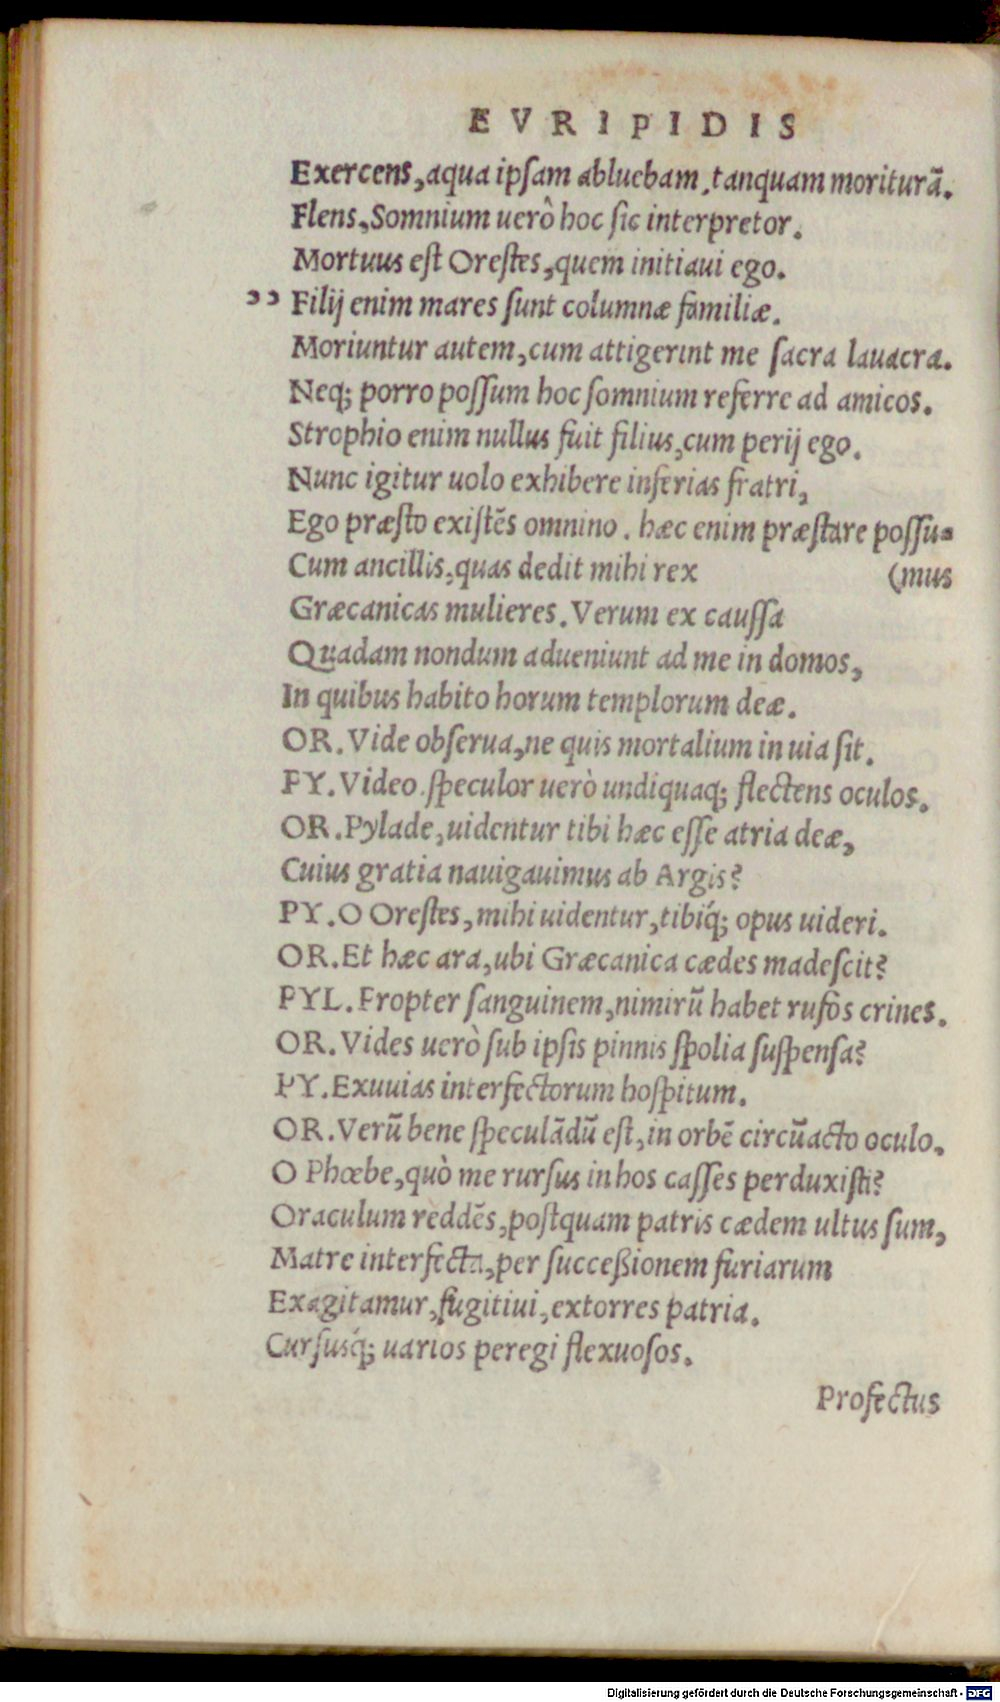 EVRIPIDIS
Exercens, aqua ipsam abluebam, tanquam moriturã.
Flens, Somnium uerò hoc sic interpretor.
Mortuus est Orestes, quem initiaui ego.
ɔɔ Filij enim mares sunt columnæ familiæ.
Moriuntur autem, cum attigerint me sacra lauacra.
Neq; porro possum hoc somnium referre ad amicos.
Strophio enim nullus fuit filius, cum perij ego.
Nunc igitur uolo exhibere inferias fratri,
Ego præsto existẽs omnino. hæc enim præstare possu=
Cum ancillis, quas dedit mihi rex (mus
Græcanicas mulieres. Verum ex caussa
Quadam nondum adueniunt ad me in domos,
In quibus habito horum templorum deæ.
OR. Vide obserua, ne quis mortalium in uia sit.
PY. Video. speculor uerò undiquaq; flectens oculos.
OR. Pylade, uidentur tibi hæc esse atria deæ,
Cuius gratia nauigauimus ab Argis?
PY. O Orestes, mihi uidentur, tibiq́; opus uideri.
OR. Et hæc ara, ubi Græcanica cædes madescit?
PYL. Propter sanguinem, nimirũ habet rufos crines.
OR. Vides uerò sub ipsis pinnis spolia suspensa?
PY. Exuuias interfectorum hospitum.
OR. Verũ bene speculãdũ est, in orbẽ circũacto oculo.
O Phœbe, quò me rursus in hos casses perduxisti?
Oraculum reddẽs, postquam patris cædem ultus sum,
Matre interfecta, per successionem furiarum
Exagitamur, fugitiui, extorres patria.
Cursusq́; uarios peregi flexuosos.
Profectus
Digitalisierung gefördert durch die Deutsche Forschungsgemeinschaft - DFG